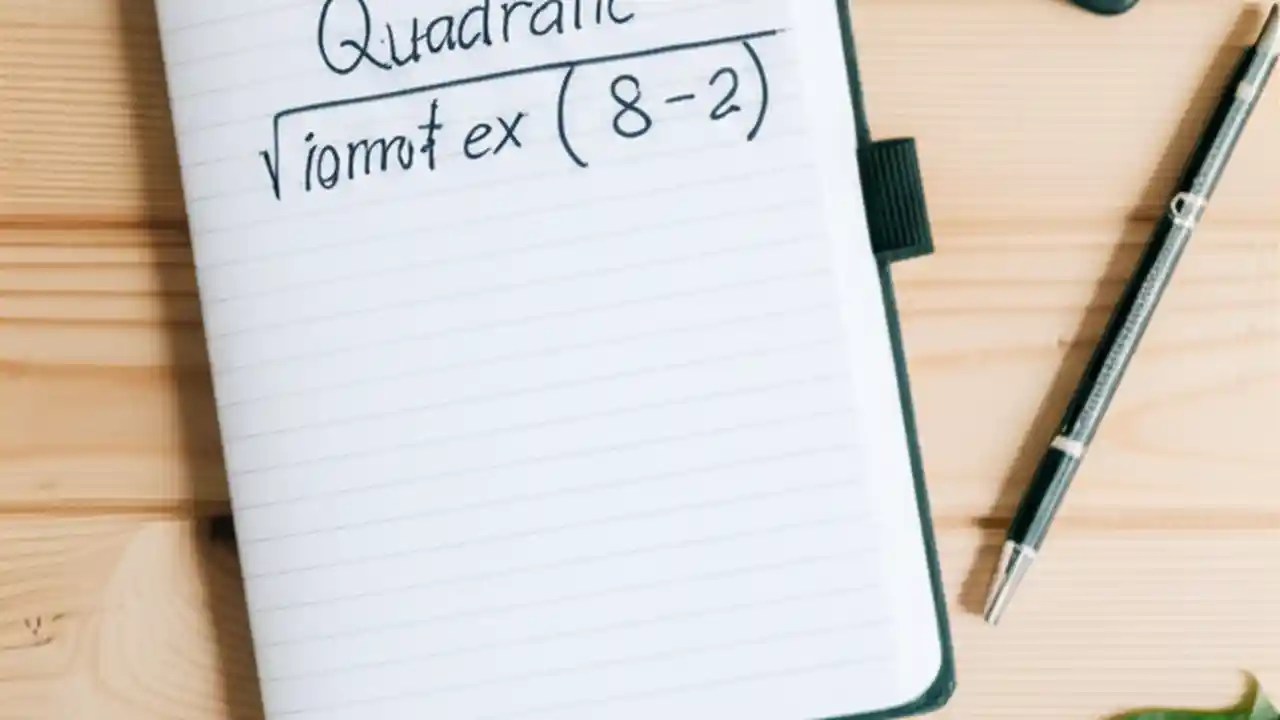 Quadratic
√iormot ex ( 8-2)